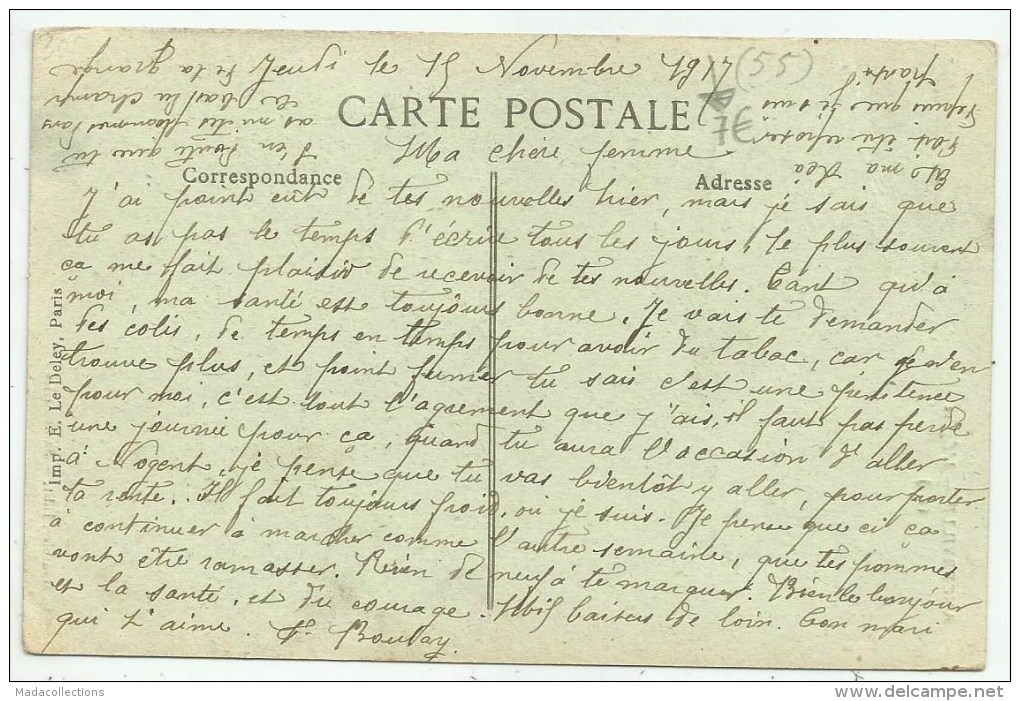 Jeudi le 15 Novembre 1917 (55)
CARTE POSTALE
7€
Ma chere femme
Correspondance
Adresse
J'ai point eût de tes nouvelles hier, mais je sais que
tu as pas le temps d'écrire tous les jours, le plus souvent
ça me fait plaisir de recevoir de tes nouvelles. Tant qu'à
moi, ma santé est toujours bonne. Je vais te demander
des colis, de temps en temps pour avoir du tabac, car j'en
trouve plus, et point fumer tu sais c'est une penitence
pour moi, c'est tout l'agrement que j'ais, il faut pas perdre
une journée pour ça, quand tu aura l'occasion d'aller
à Nogent, je pense que tu vas bientôt y aller, pour porter
ta rente. Il fait toujours froid, où je suis. Je pense que ci ça
à continuer à marcher comme l'autre semaine, que tes pommes
vont être ramasser. Rien de neuf à te marquer. Bien le bonjour
et la santé, et du courage. Mil baisers de loin. Ton mari
qui t'aime. F. Boulay
de la grange
le bas du champ
s'en doute que tu
depuis que je suis
parti
doit être reposer
Imp. E. Le Deley, Paris
Madacollections
http://www.delcampe.net